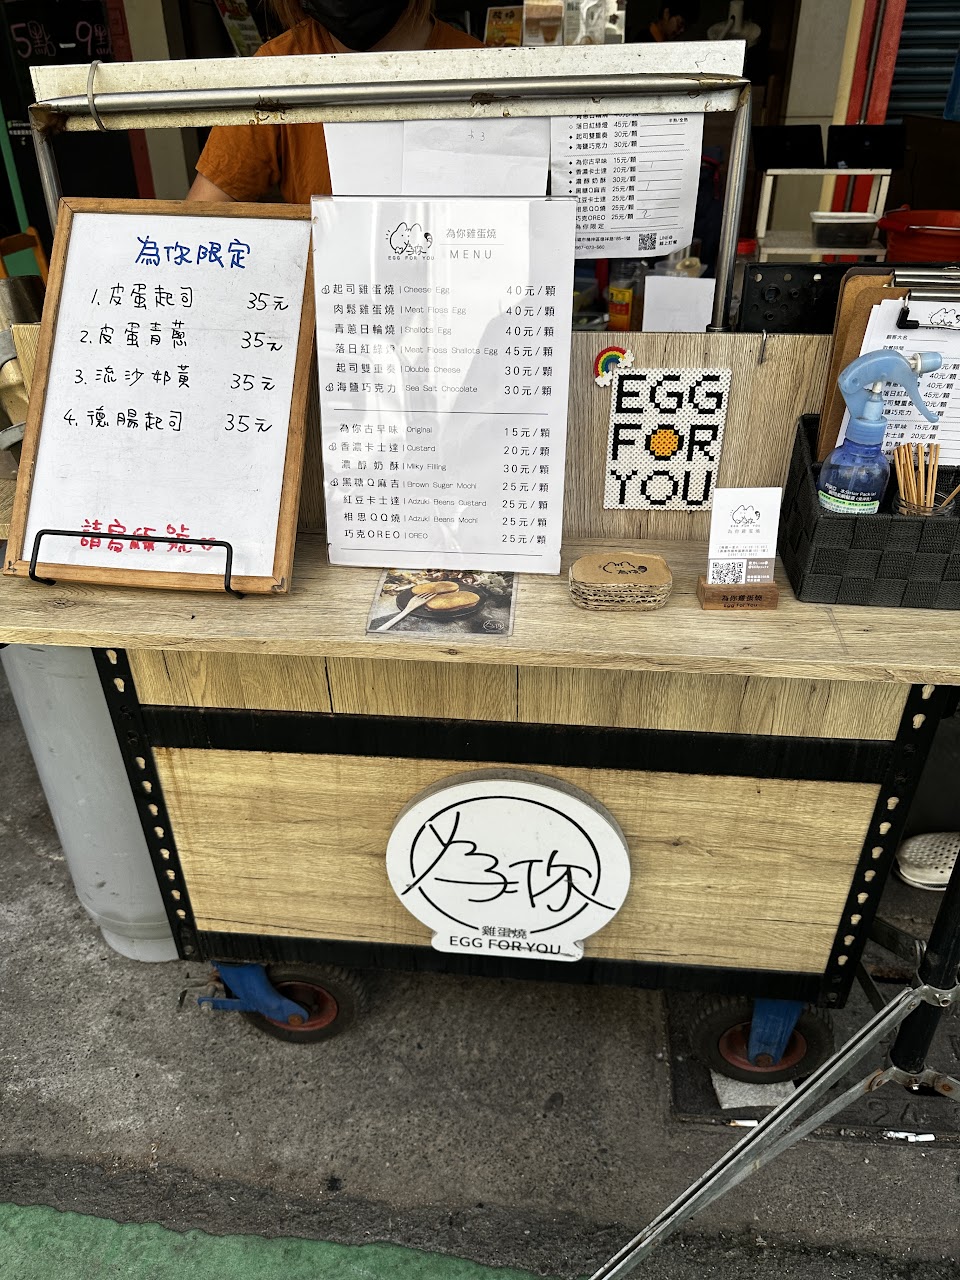 5點-9點
為你限定
1. 皮蛋起司 35元
2. 皮蛋青蔥 35元
3. 流沙奶黃 35元
4. 德腸起司 35元
請寫編號
為你雞蛋燒
MENU
EGG FOR YOU
起司雞蛋燒 | Cheese Egg 40元/顆
肉鬆雞蛋燒 | Meat Floss Egg 40元/顆
青蔥日輪燒 | Shallots Egg 40元/顆
落日紅綠燈 | Meat Floss Shallots Egg 45元/顆
起司雙重奏 | Dlouble Cheese 30元/顆
海鹽巧克力 | Sea Salt Chocolate 30元/顆
為你古早味 | Original 15元/顆
香濃卡士達 | Custard 20元/顆
濃醇奶酥 | Milky Filling 30元/顆
黑糖Q麻吉 | Brown Sugar Mochi 25元/顆
紅豆卡士達 | Adzuki Beans Custard 25元/顆
相思QQ燒 | Adzuki Beans Mochi 25元/顆
巧克OREO | OREO 25元/顆
落日紅綠燈 45元/顆
起司雙重奏 30元/顆
海鹽巧克力 30元/顆
為你古早味 15元/顆
香濃卡士達 20元/顆
濃醇奶酥 30元/顆
黑糖Q麻吉 25元/顆
紅豆卡士達 25元/顆
相思QQ燒 25元/顆
巧克OREO 25元/顆
為你限定
EGG
FOR
YOU
為你雞蛋燒
Egg For You
為你
雞蛋燒
EGG FOR YOU